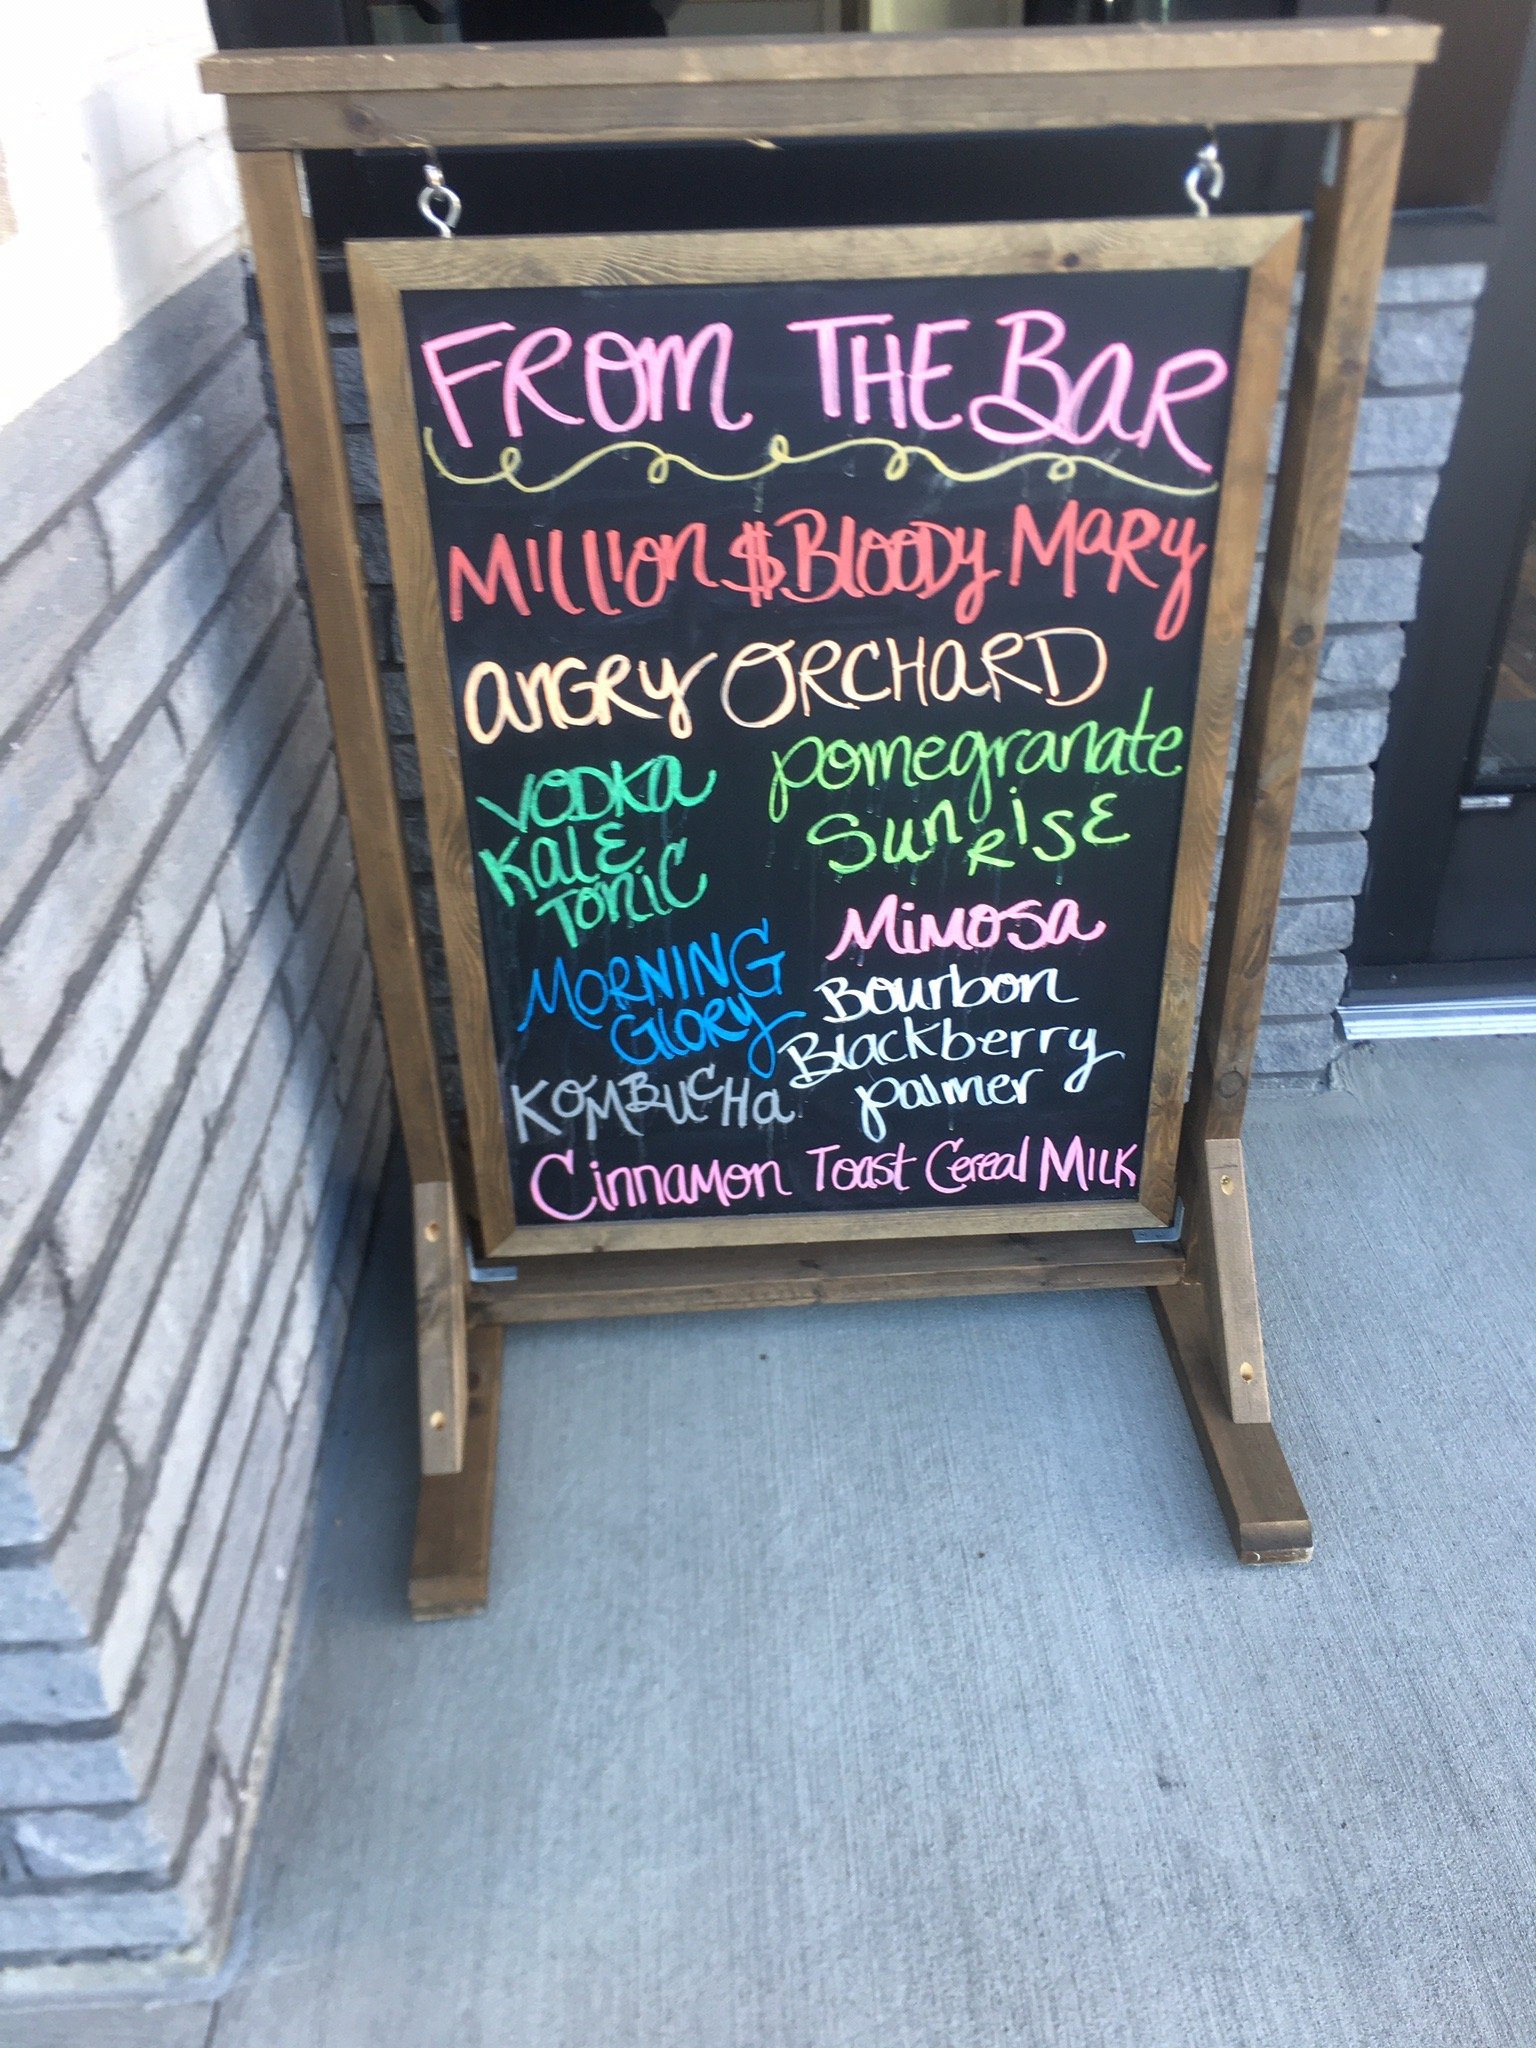 FROM THE BAR
MILLION $ BLOODY MARY
ANGRY ORCHARD
VODKA
KALE
TONIC
pomegranate
SUNRISE
MORNING
GLORY
MIMOSA
Bourbon
Blackberry
palmer
KOMBUCHA
Cinnamon Toast Cereal MILK